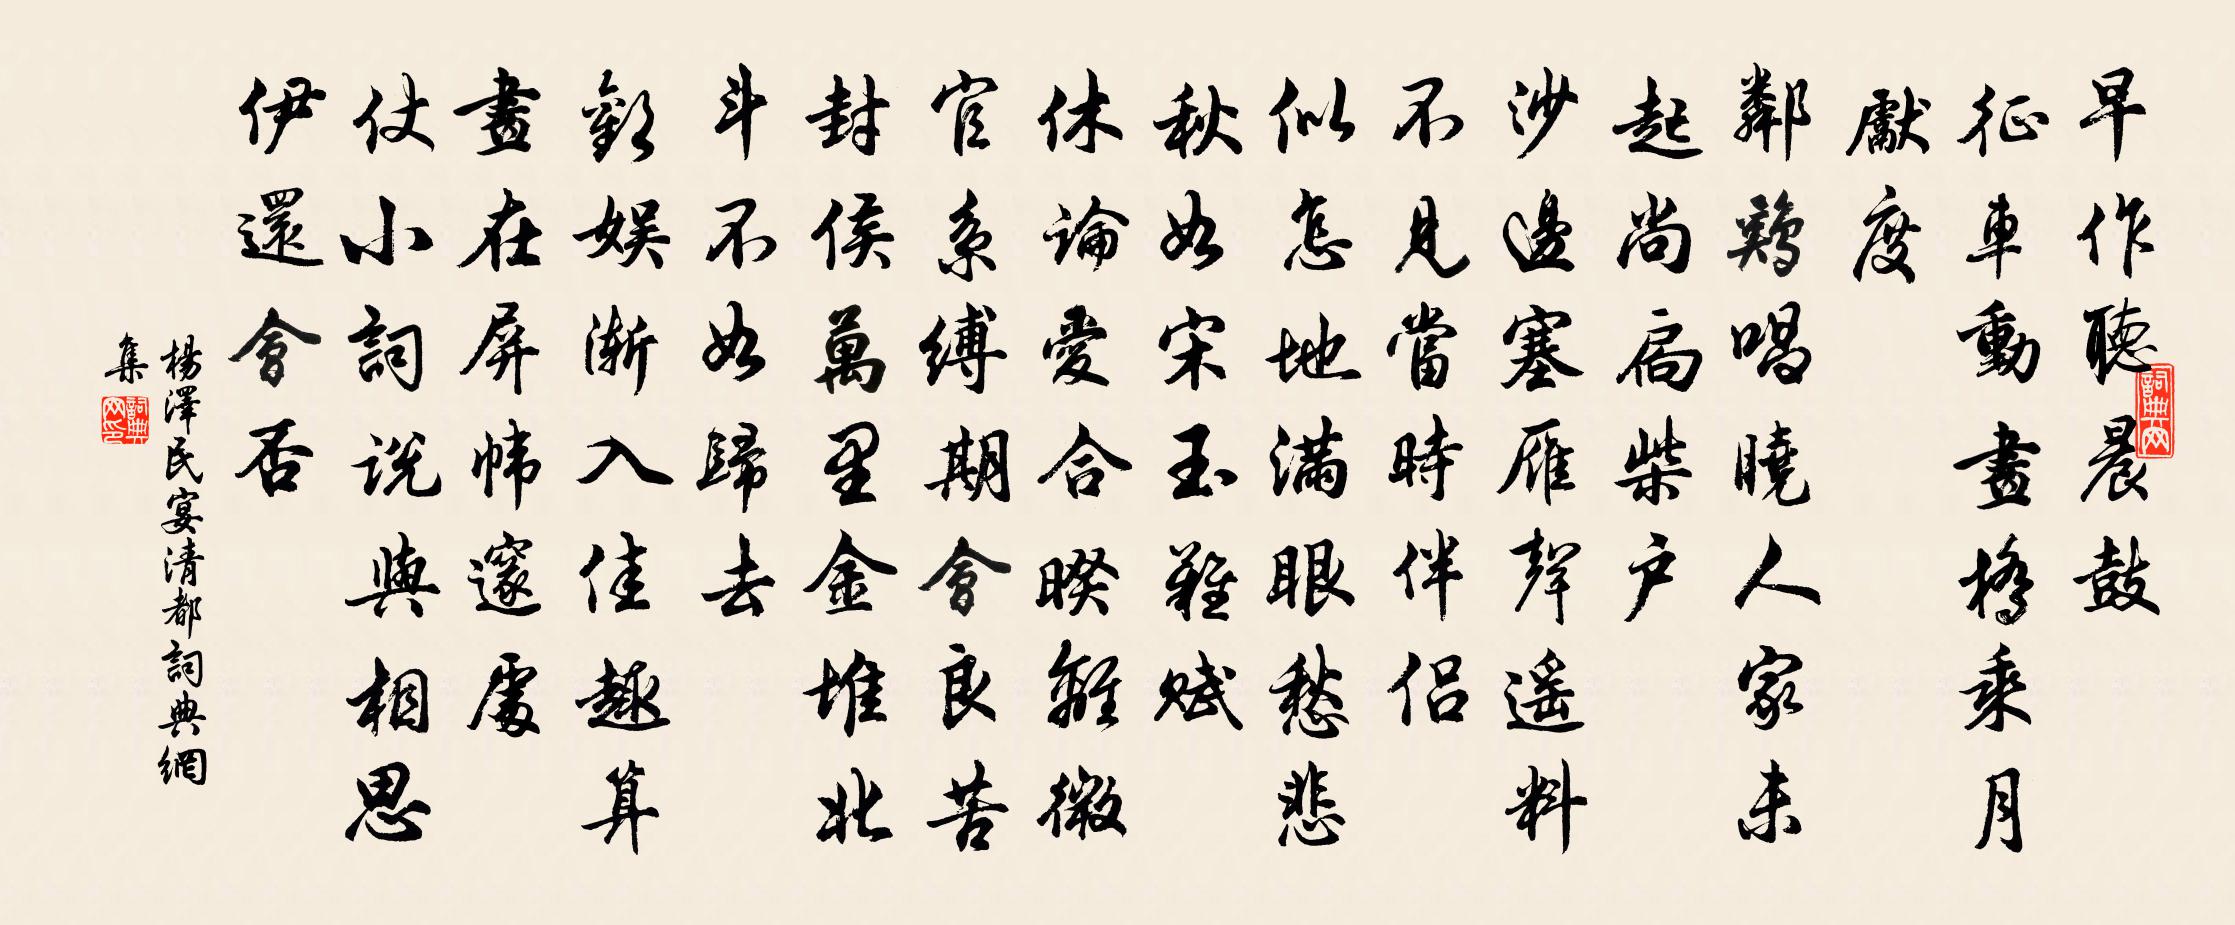 早作聽晨鼓
征車動畫橋乘月
獻度
鄰鷄唱曉人家未
起尚扃柴戶
沙邊塞雁聲遙料
不見當時伴侶
似怎地滿眼愁悲
秋如宋玉難賦
休論愛合暌離微
官系縛期會良苦
封侯萬里金堆北
斗不如歸去
歡娛漸入佳趣算
畫在屏幃邃處
仗小詞說與相思
伊還會否
楊澤民宴清都詞典網
集
詞典网
詞典网印